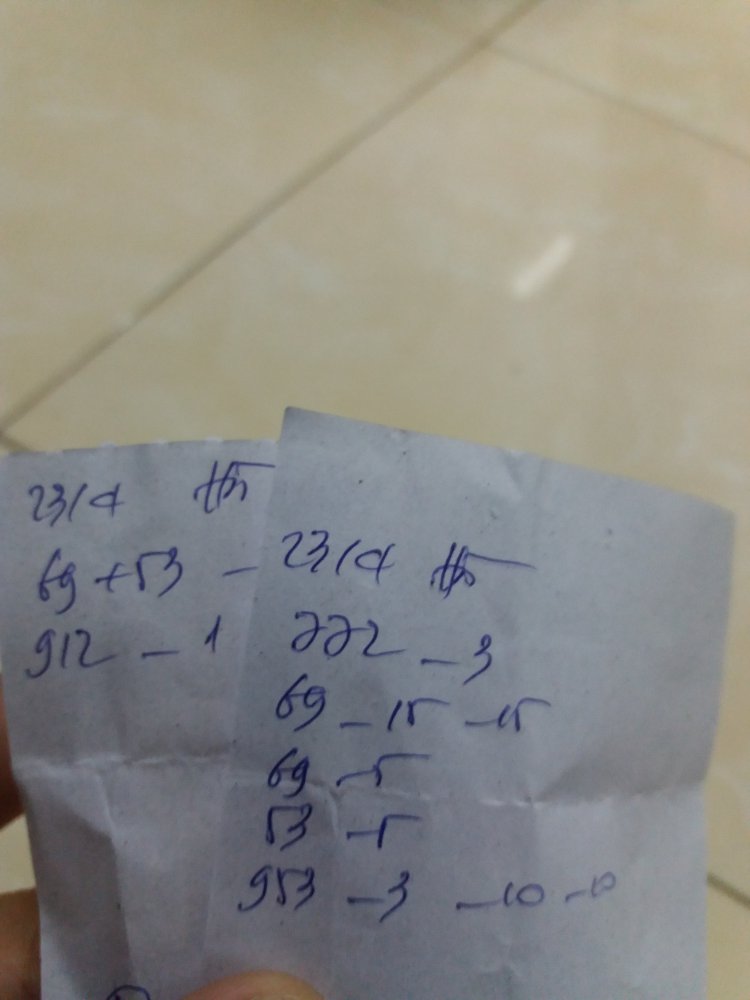 23/4 #5
69 + 53 -
912 - 1
23/4 #5
222 - 3
69 - 15 - 15
69 - 5
53 - 5
953 - 3 - 10 - 10